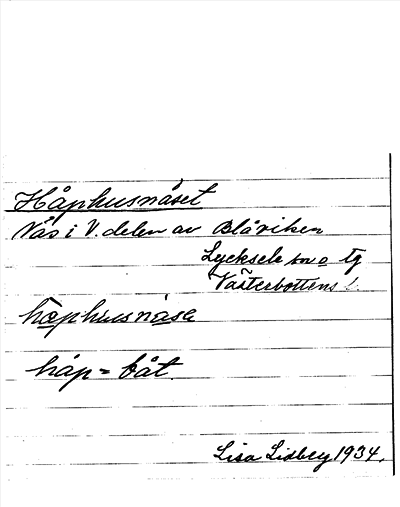 Håphusnäset
Näs i V. delen av Blåviken
Lycksele sn o tg
Västerbottens l.
håphusnäsε
håp = båt.
Lisa Lidberg 1934.